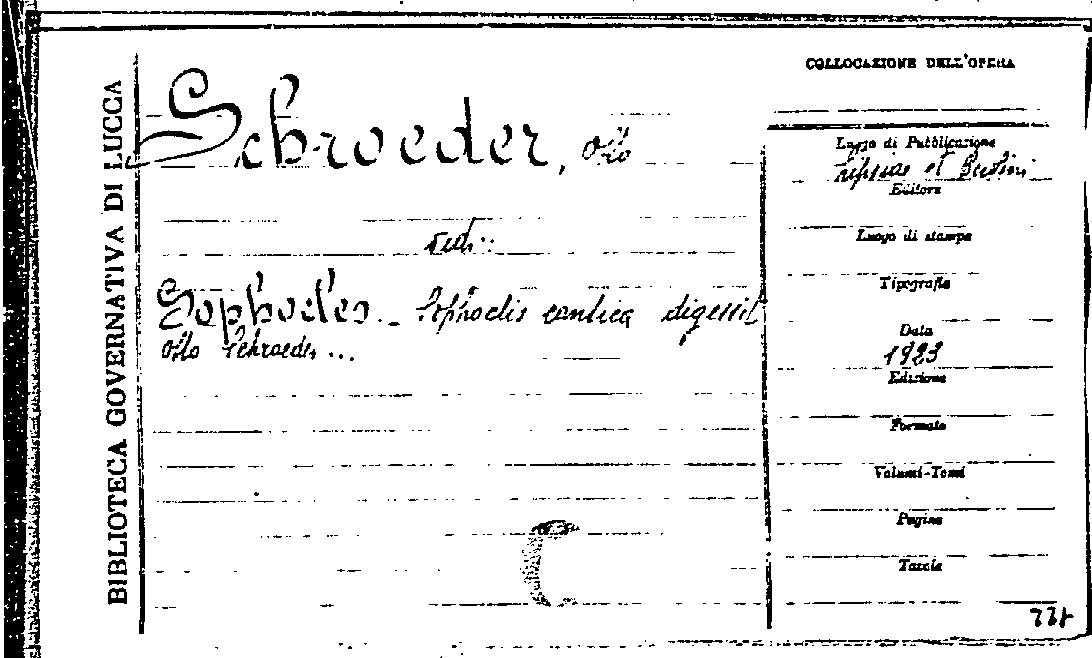 BIBLIOTECA GOVERNATIVA DI LUCCA
Schroeder, Otto
vedi:
Sophocles. - Sophoclis cantica digessit
Otto Schroeder ...
C
COLLOCAZIONE DELL'OPERA
Luogo di Pubblicazione
Lipsiae et Berolini
Editore
Luogo di stampa
Tipografia
Data
1923
Edizione
Formato
Volumi-Tomi
Pagine
Tavole